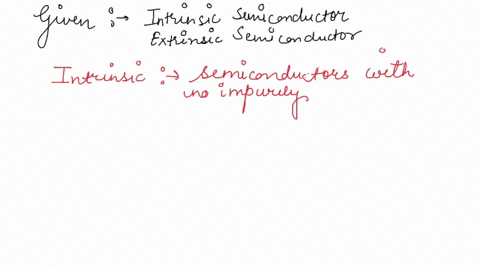 Given :→ Intrinsic Semiconductor
Extrinsic Semiconductor
Intrinsic :→ Semiconductors with
no impurely